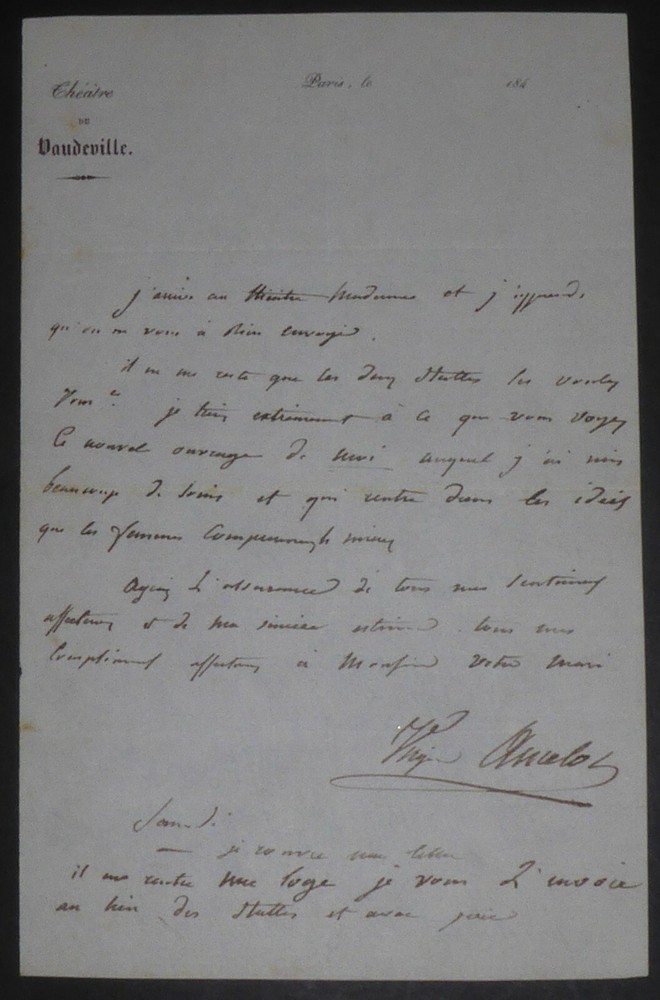 Théâtre
DU
Vaudeville.
Paris, le 184
j'arrive au théatre Madame et j'apprends
qu'on ne vous a rien envoyé.
il ne me reste que les deux stalles les voulez
vous ? je tiens extrêmement à ce que vous voyez
le nouvel ouvrage de moi auquel j'ai mis
beaucoup de soins et qui rentre dans les idées
que les femmes comprennent mieux
Agréez l'assurance de tous mes sentiments
affectueux et de ma sincère estime tous mes
compliments affectueux à Monsieur votre mari
Virginie Ancelot
Samedi
je rouvre ma lettre
il me rentre une loge je vous l'envoie
au lieu des stalles et avec joie